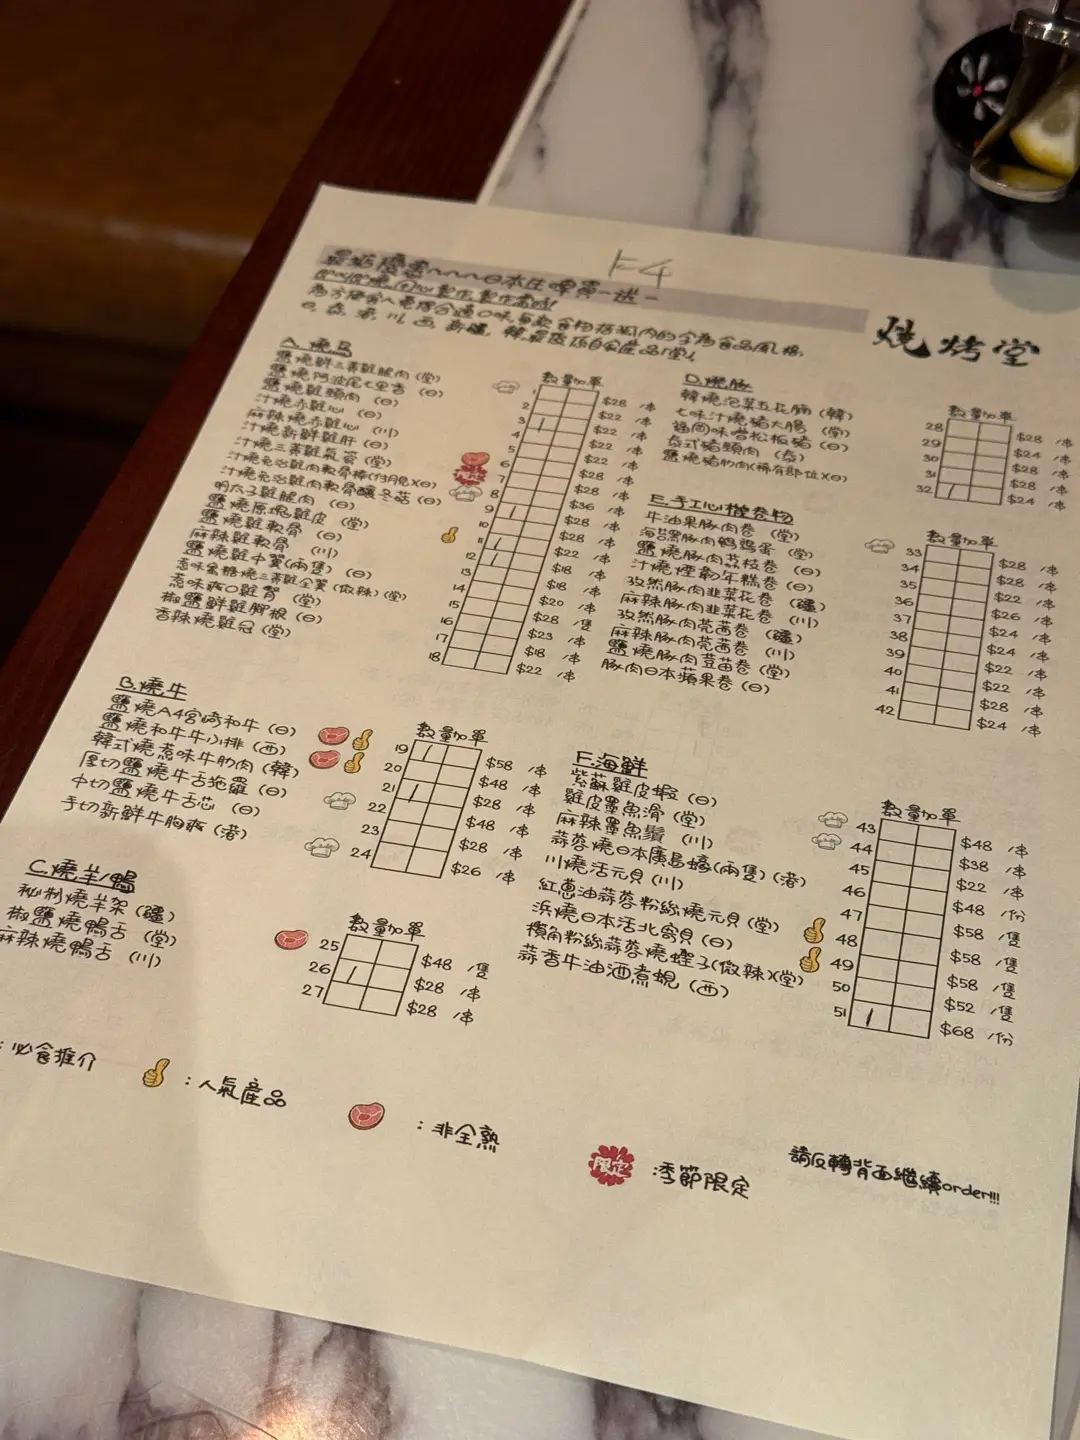 F4
日本生啤買一送一
燒烤堂
A.燒鳥
數量加單
鹽燒鮮三黃雞腿肉 (堂) 1 $28 /串
鹽燒阿波尾七里香 (日) 2 $22 /串
鹽燒雞頸肉 (日) 3 $22 /串
汁燒赤雞心 (日) 4 $22 /串
麻辣燒赤雞心 (川) 5 $22 /串
汁燒新鮮雞肝 (日) 6 $28 /串
汁燒三黃雞 (堂) 7 $28 /串
汁燒免治雞肉軟骨棒(付月見)(日) 8 $36 /串
汁燒免治雞肉軟骨釀冬菇 (日) 9 $28 /串
明太子雞腿肉 (日) 10 $28 /串
鹽燒原塊雞皮 (堂) 11 $22 /串
鹽燒雞軟骨 (日) 12 $18 /串
麻辣雞軟骨 (川) 13 $18 /串
鹽燒雞中翼(兩隻) (日) 14 $20 /串
惹味蜜糖燒三黃雞全翼 (微辣) (堂) 15 $28 /隻
惹味爽口雞腎 (堂) 16 $23 /串
椒鹽鮮雞腳根 (日) 17 $18 /串
香辣燒雞冠 (堂) 18 $22 /串
B.燒牛
數量加單
鹽燒A4宮崎和牛 (日) 19 $58 /串
鹽燒和牛牛小排 (西) 20 $48 /串
韓式燒惹味牛肋肉 (韓) 21 $28 /串
厚切鹽燒牛舌拖羅 (日) 22 $48 /串
中切鹽燒牛舌芯 (日) 23 $28 /串
手切新鮮牛胸爽 (港) 24 $26 /串
C.燒羊/鴨
數量加單
秘制燒羊架 (疆) 25 $48 /隻
椒鹽燒鴨舌 (堂) 26 $28 /串
麻辣燒鴨舌 (川) 27 $28 /串
D.燒豚
數量加單
韓燒泡菜五花腩 (韓) 28 $28 /串
七味汁燒豬大腸 (堂) 29 $24 /串
福岡味噌松板豬 (日) 30 $28 /串
泰式豬頸肉 (泰) 31 $28 /串
鹽燒豬肋肉(稀有部位)(日) 32 $24 /串
E.手工心機卷物
數量加單
牛油果豚肉卷 (堂) 33 $28 /串
海苔黑豚肉鵪鶉蛋 (堂) 34 $28 /串
鹽燒豚肉荔枝卷 (日) 35 $22 /串
汁燒煙肉年糕卷 (日) 36 $26 /串
孜然豚肉韭菜花卷 (疆) 37 $24 /串
麻辣豚肉韭菜花卷 (川) 38 $24 /串
孜然豚肉芫茜卷 (疆) 39 $22 /串
麻辣豚肉芫茜卷 (川) 40 $22 /串
鹽燒豚肉豆苗卷 (堂) 41 $28 /串
豚肉日本蘋果卷 (日) 42 $24 /串
F.海鮮
數量加單
紫蘇雞皮蝦 (日) 43 $48 /串
雞皮墨魚滑 (堂) 44 $38 /串
麻辣墨魚鬚 (川) 45 $22 /串
蒜蓉燒日本廣島蠔(兩隻) (港) 46 $48 /份
川燒活元貝 (川) 47 $58 /隻
紅蔥油蒜蓉粉絲燒元貝 (堂) 48 $58 /隻
浜燒日本活北寄貝 (日) 49 $58 /隻
欖角粉絲蒜蓉燒蟶子(微辣)(堂) 50 $52 /隻
蒜香牛油酒煮蜆 (西) 51 $68 /份
: 必食推介
: 人氣產品
: 非全熟
限定 : 季節限定
請反轉背面繼續order!!!